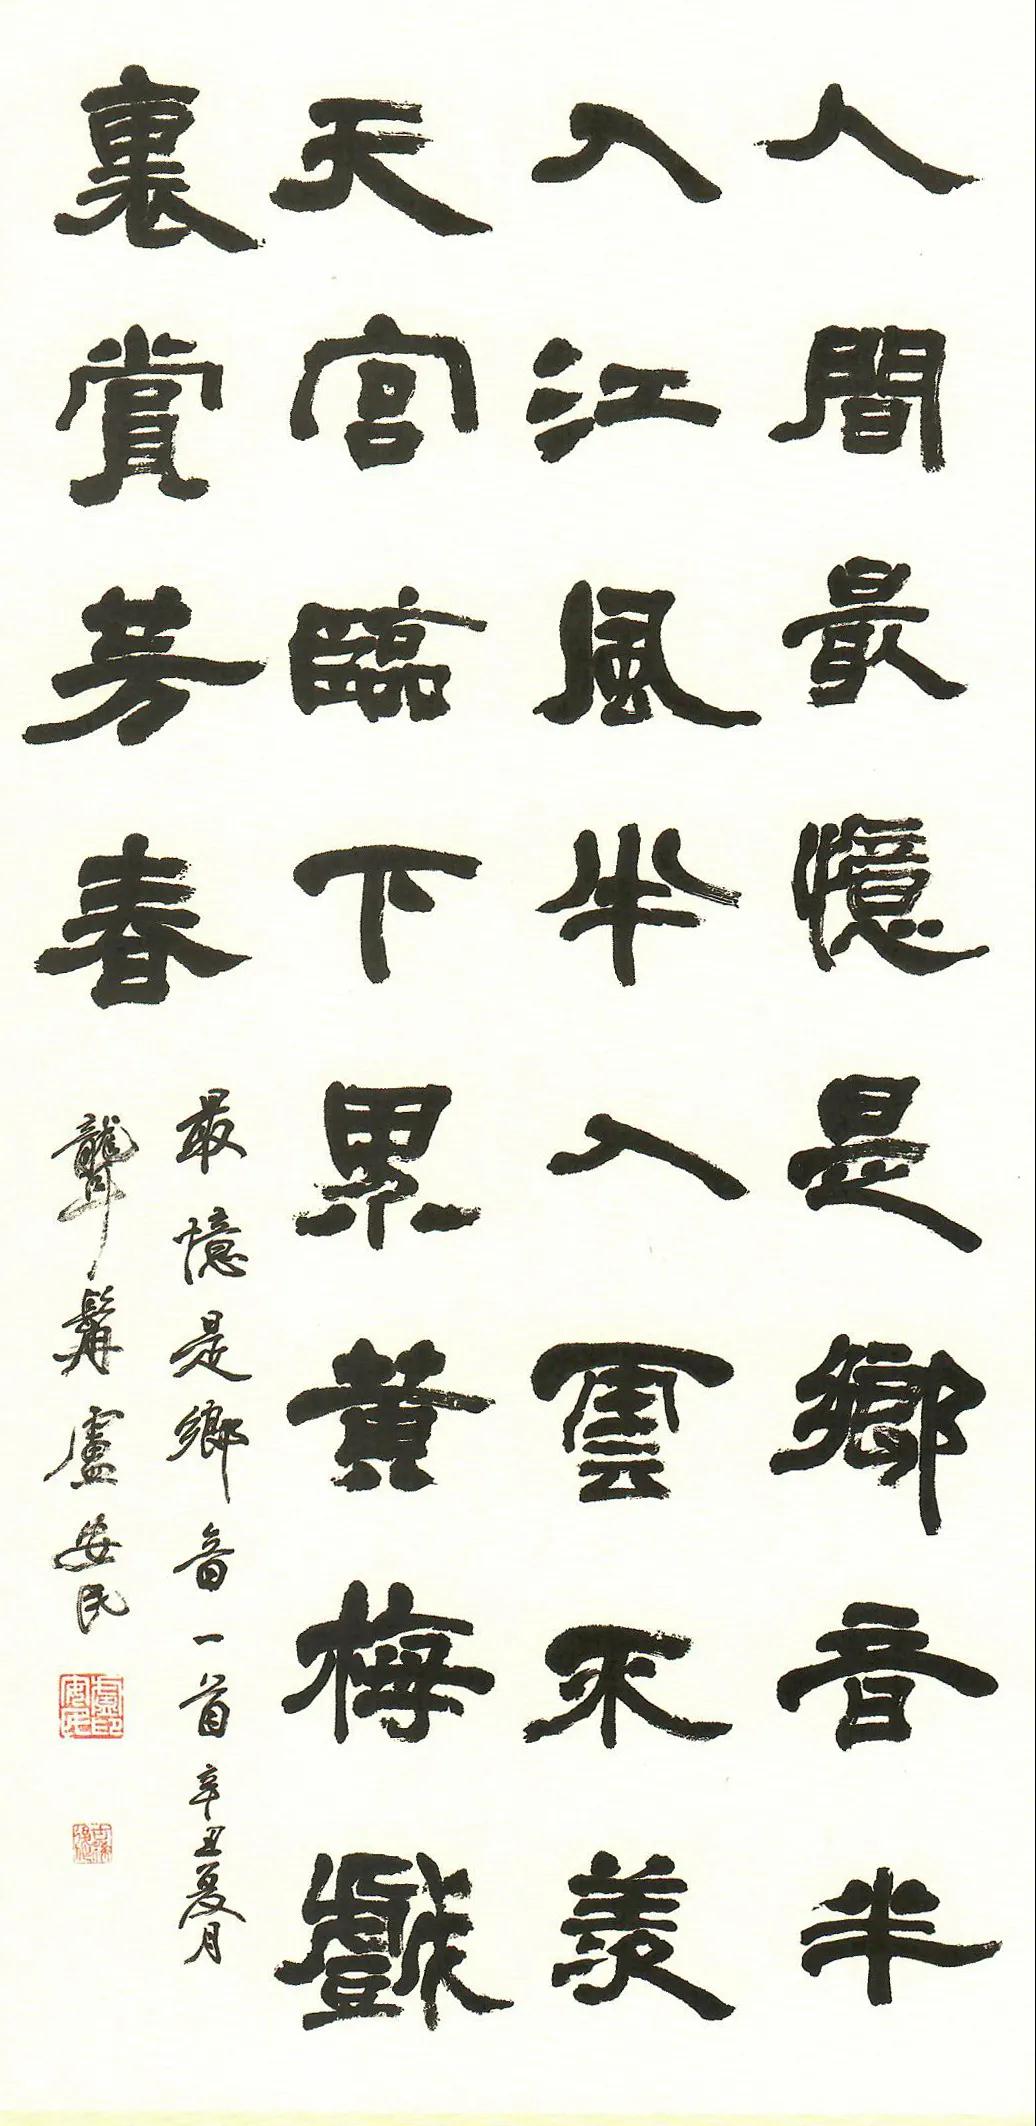 人間最憶是鄉音半
入江風半入雲不羨
天宮臨下界黃梅戲
裏賞芳春
最憶是鄉音一首 辛丑夏月
聾髯盧安民
盧印安民